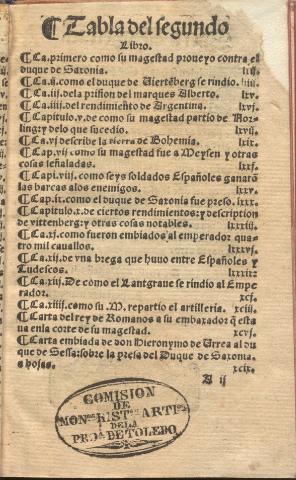 ¶ Tabla del segundo
Libro.
¶ Ca. primero como su magestad proueyo contra el
duque de Saxonia. lxij.
¶ Ca. ij. como el duque de Viertēberg se rindio. liiij.
¶ Ca. iij. de la prision del marques Alberto. lxv.
¶ Ca. iiij. del rendimiēto de Argentina. lxvj.
¶ Capitulo. v. de como su magestad partio de Nor-
lingr y delo que sucedio. lxvij.
¶ Ca. vj describe la tierra de Bohemia. lxix.
¶ Cap. vij como su magestad fue a Meysen y otras
cosas señaladas. lxxj.
¶ Capi. viij. como seys soldados Españoles ganarō
las barcas alos enemigos. lxxv.
¶ Cap. ix. como el duque de Saxonia fue preso. lxxx.
¶ Capitulo. x. de ciertos rendimientos: y description
de vittenberg y otras cosas notables. lxxxiij.
¶ Ca. xj. como fueron embiados al emperador qua-
tro mil cauallos. lxxxvj.
¶ Ca. xij. de vna brega que huuo entre Españoles y
Tudescos. lxxxix
¶ Ca. xiij. De como el Lantgraue se rindio al Empe
rador. xcj.
¶ Ca. xiiij. como su .M. repartio el artilleria. xciij.
¶ Carta del rey de Romanos a su embaxador q̄ esta
ua en la corte de su magestad. xcvj.
¶ Carta embiada de don Hieronymo de Vrrea al du
que de Sessa: sobre la presa del Duque de Saxonia.
a hojas. xcix.
A ij
COMISION
DE
MON.tos HIST.cos ARTI.cos
DE LA
PRO.a DE TOLEDO